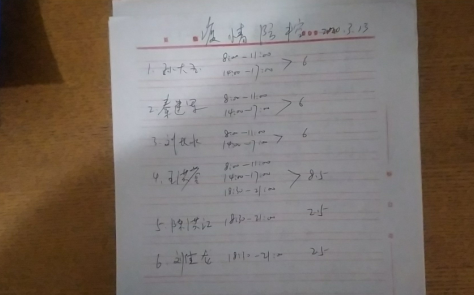 疫情防控 2020.3.13
8:00-11:00
1. 孙大 14:00-17:00 > 6
8:00-11:00
2. 秦建军 14:00-17:00 > 6
8:00-11:00
3. 刘 14:00-17:00 > 6
8:00-11:00
4. 王 14:00-17:00 > 8.5
18:30-21:00
5. 陈洪江 18:30-21:00 2.5
6. 刘 18:30-21:00 2.5